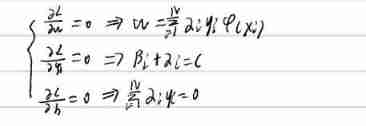 ∂L/∂w = 0 ⇒ w = ∑_{i=1}^{N} αᵢ yᵢ φ(xᵢ)
∂L/∂ξᵢ = 0 ⇒ βᵢ + αᵢ = C
∂L/∂b = 0 ⇒ ∑_{i=1}^{N} αᵢ yᵢ = 0